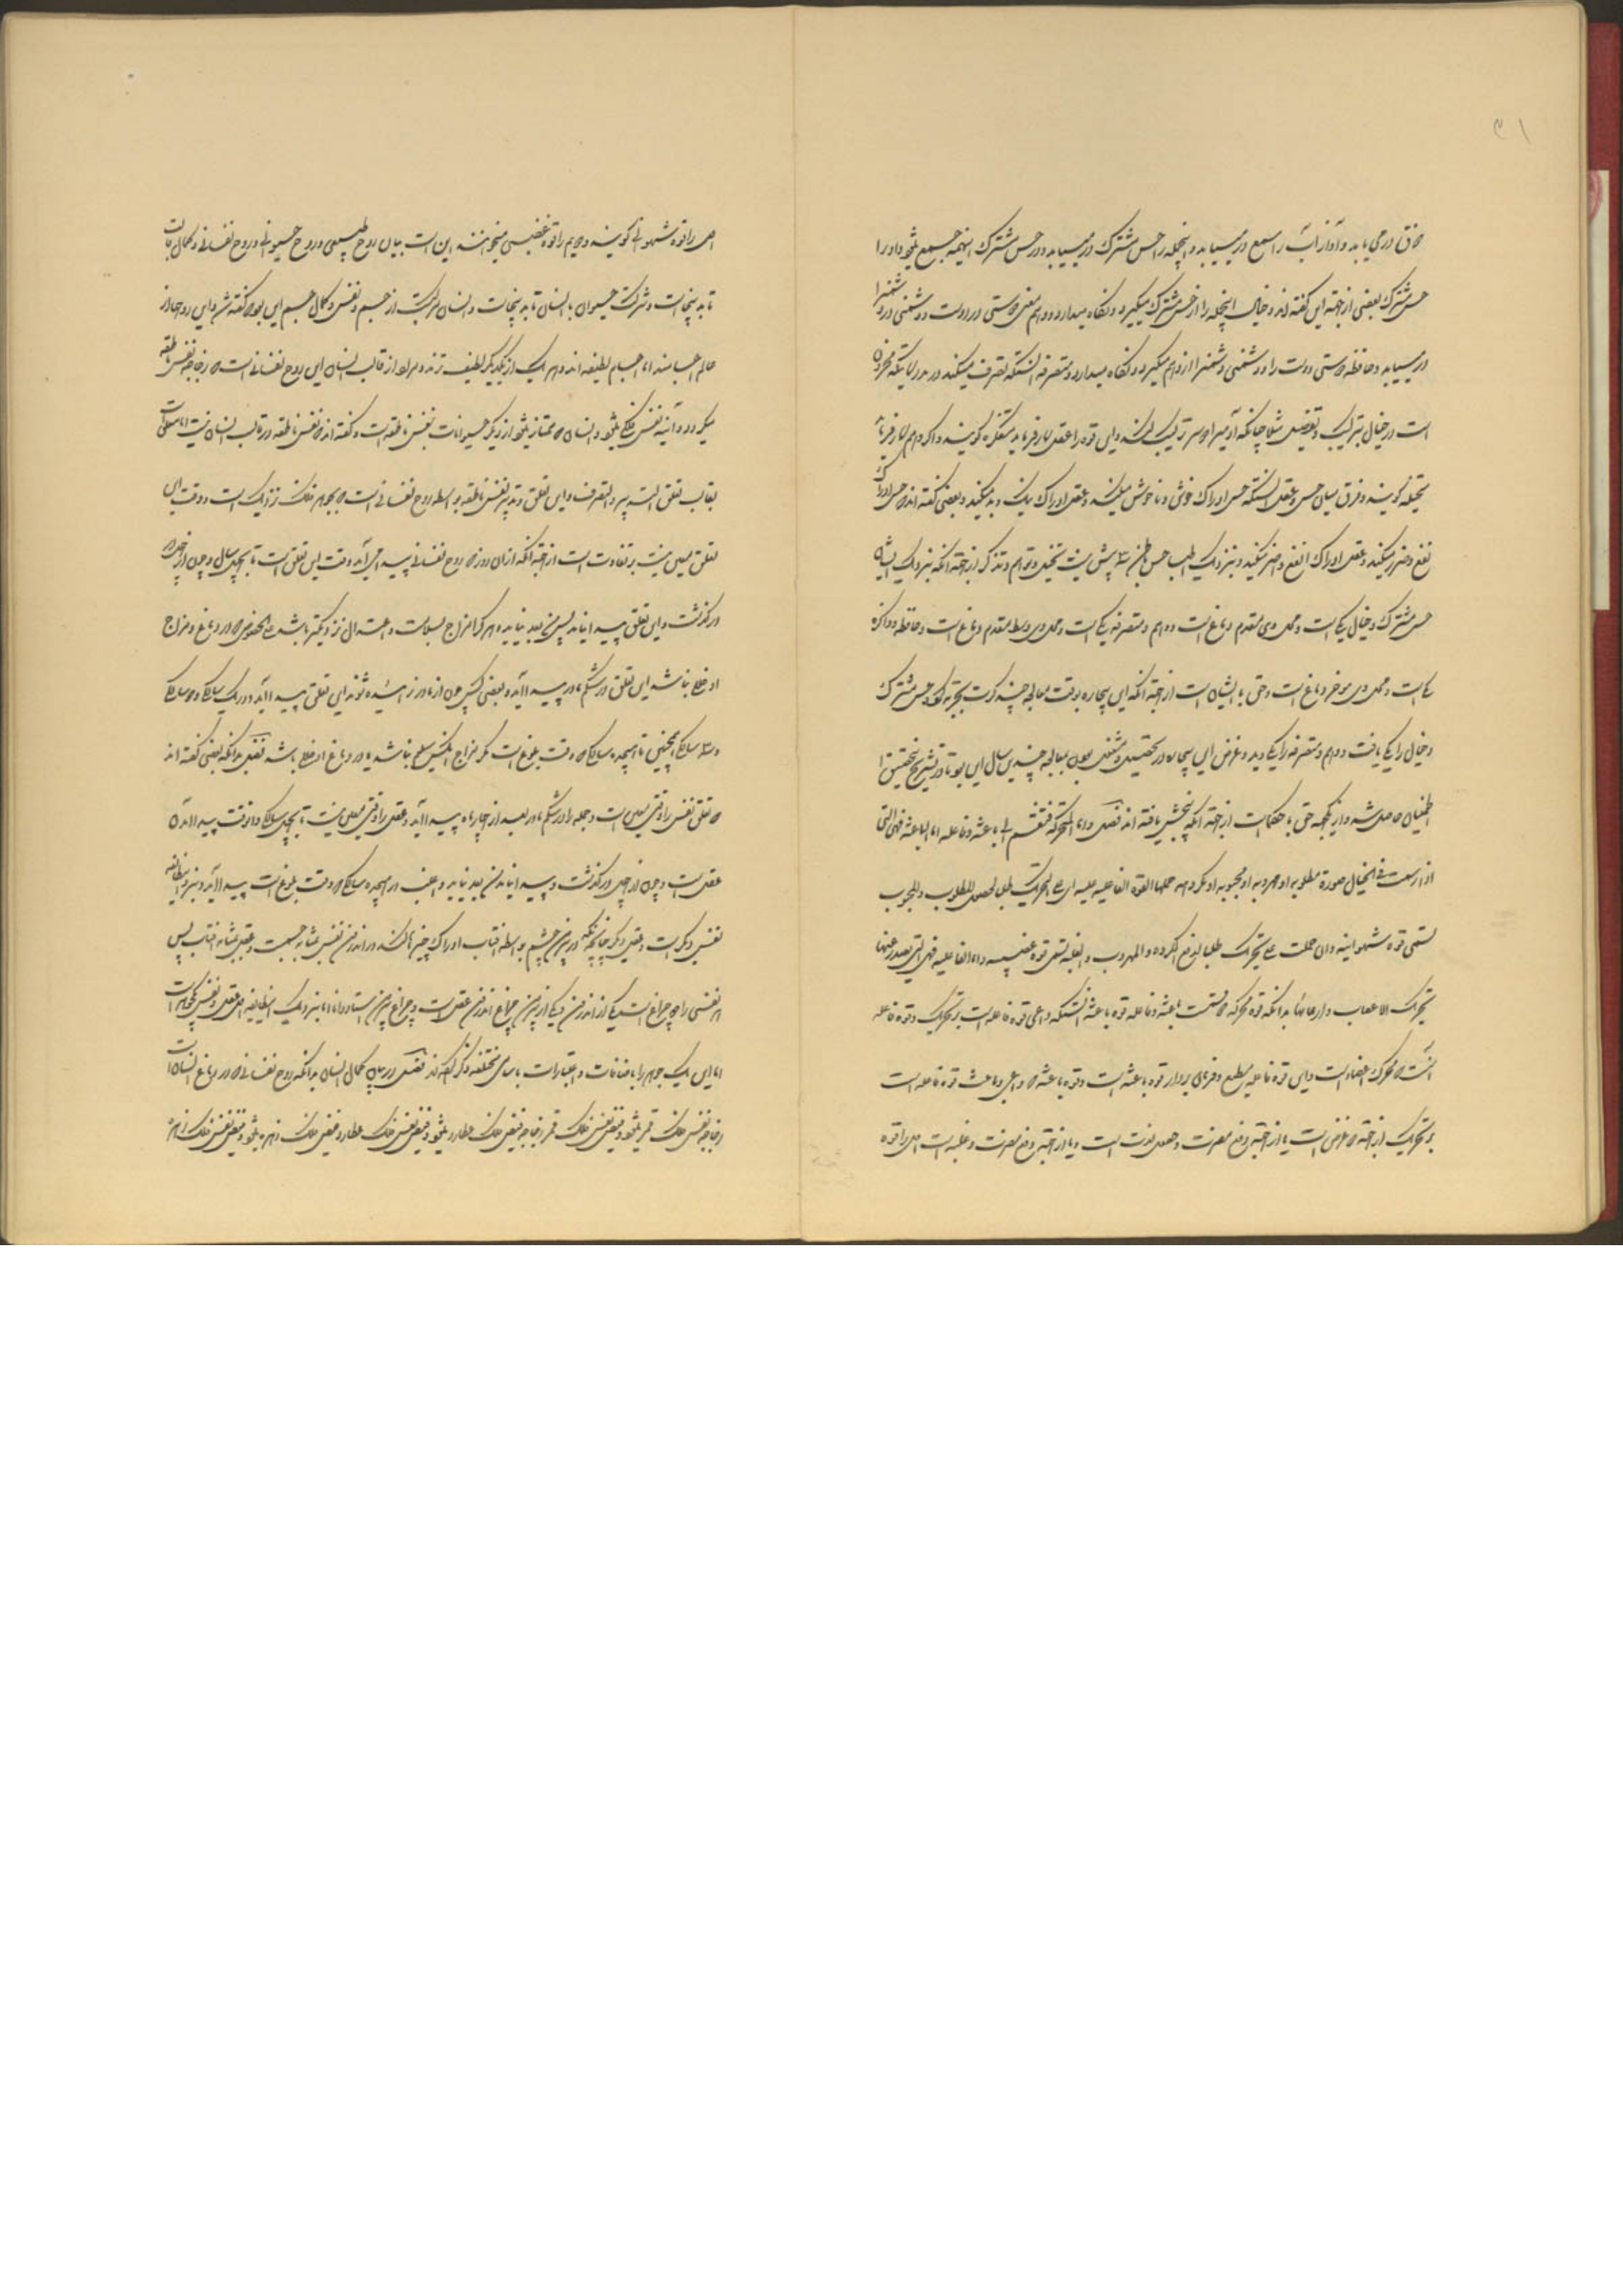 ذوق درمی یابد و آواز آب را سمع درمییابد و اینجمله را حس مشترک درمییابد و در حس مشترک اینهمه جمع میشود و او را
حس مشترک بعضی از جهة این گفته اند و خیال اینجمله را از حس مشترک میگیرد و نگاه میدارد و وهم معنی دوستی در دوست و دشمنی در دشمن را
درمییابد و حافظه دوستی دوست را و دشمنی دشمن را از وهم میگیرد و نگاه میدارد و متصرفه آنستکه تصرف میکند در مدرکاتیکه مخزون
است در خیال بترکیب و تفصیل مثلا چنانکه آدمی را دو سر ترکیب کند و این قوه را عقل کار فرماید متفکره گویند و اگر وهم کار فرماید
متخیله گویند و فرق میان حس و عقل آنستکه حس ادراک خوشی و ناخوشی میکند و عقل ادراک نیک و بد میکند و بعضی گفته اند حس ادراک
نفع و ضر میکند و عقل ادراک انفع و اضر میکند و بنزدیک اطبا حس باطن سه بیش نیست تخیل و توهم و تذکر از جهة آنکه بنزدیک ایشان
حس مشترک و خیال یکی است و محل وی مقدم دماغ است و وهم و متصرفه یکی است و محل وی وسط مقدم دماغ است و حافظه و ذاکره
یکی است و محل وی موخر دماغ است و حق با ایشان است از جهة آنکه این بیچاره بوقت معالجه چند کرت تجربه کرد حس مشترک
و خیال را یکی یافت و وهم و متصرفه را یکی دید و غرض این بیچاره در تحصیل و شغل بمعالجه چندین سال این بود تا در تشریح تحقیق را
اطمینان حاصل شد و از یکجهة حق با حکما است از جهة آنکه پنج بخش یافته اند فصل و اما المتحرکة فتنقسم الی باعثة و فاعلة اما الباعثة فهی التی
اذا ارتسمت فی الخیال صورة مطلوبة او مهروبة او محبوبة او مکروهة حملها القوة الفاعلیة علی التحریک طلبا لحصول المطلوب و المحبوب
تسمی قوة شهوانیة و ان حملت علی تحریک طلبا لدفع المکروه و المهروب و الغلبة تسمی قوة غضبیة و اما الفاعلیة فهی التی تصدر عنها
تحریک الاعصاب و ارخائها بدانکه قوه محرکه دو قسمست باعثه و فاعله قوه باعثه آنستکه داعی قوه فاعله است بر تحریک و قوه فاعله
آنست که محرک اعضا است و این قوه فاعله مطیع و فرمان بردار قوه باعثه است و قوه باعثه که داعی و باعث قوه فاعله است
بر تحریک از جهة دو غرض است یا از جهة جذب منفعت و حصول لذت است و یا از جهة دفع مضرت و غلبه است اول را قوه
اول را قوه شهوانی گویند و دویم را قوه غضبی میخوانند این است بیان روح طبیعی و روح حیوانی و روح نفسانی و کمال نبات
تا بدینجاست و شرکت حیوان با انسان تا بدینجاست و انسان مرکبست از جسم و نفس و کمال جسم این بود که گفته شد و این روحها از
عالم اجسامند اما اجسام لطیفه اند و هر یک از یکدیگر لطیف ترند و مراد از قالب انسان این روح نفسانی است که زجاجه نفس ناطقه
میگردد و آئینه نفس فلکی میشود و انسان که ممتاز میشود از دیگر حیوانات بنفس ناطقه است و گفته اند که نفس ناطقه در قالب انسان نیست اما متعلق است
بقالب تعلق التدبیر و التصرف و این تعلق و تدبیر نفس ناطقه بواسطه روح نفسانی است که بجوهر فلک نزدیک است و وقت این
تعلق معین نیست بر تفاوت است از جهة آنکه از آن روز که روح نفسانی پیدا می آید وقت این تعلق است تا بچهل سال و چون از چهل
درگذشت و این تعلق پیدا نیامد پس من بعد نیاید و هر که را مزاج بسلامت و اعتدال نزدیکتر باشد علی الخصوص که در دماغ و مزاج
او خللی نباشد این تعلق در شکم مادر پیدا آید و بعضی کس چون از مادر زائیده شوند این تعلق پیدا آید و در یک سالگی و دو سالگی
و سه سالگی همچنین تا بهیجده سالگی که وقت بلوغ است مگر مزاج آنکس سلیم نباشد یا در دماغ او خللی باشد فصل بدانکه بعضی گفته اند
که تعلق نفس را وقتی معین است و جمله را در شکم مادر بعد از چهار ماه پیدا آید و عقل را وقتی معین نیست تا بچهل سالگی و آنوقت پیدا آمدن
عقل است و چون از چهل درگذشت و پیدا نیامد من بعد نیاید و اغلب در هیجده سالگی که وقت بلوغ است پیدا آید و بنزد این طایفه
نفس دیگر است و عقل دیگر چنانچه در بیرون چشم بواسطه آفتاب ادراک چیزها کند در اندرون نفس بمثابه چشمست و عقل بمثابه آفتاب پس
هر نفسی را دو چراغ است یکی از اندرون و یکی از بیرون چراغ اندرون عقل است و چراغ بیرون استاد دانا اما بنزدیک این طایفه اول عقل و نفس یکجوهر است
اما این یک جوهر را باضافات و اعتبارات باسامی مختلفه ذکر کرده اند فصل در بیان کمال انسان بدانکه روح نفسانی که در دماغ انسان است
زجاجه نفس فلک قمر میشود و فیض نفس فلک قمر زجاجه فیض فلک عطارد میشود و فیض نفس فلک عطارد و فیض فلک زهره میشود و فیض نفس فلک زهره